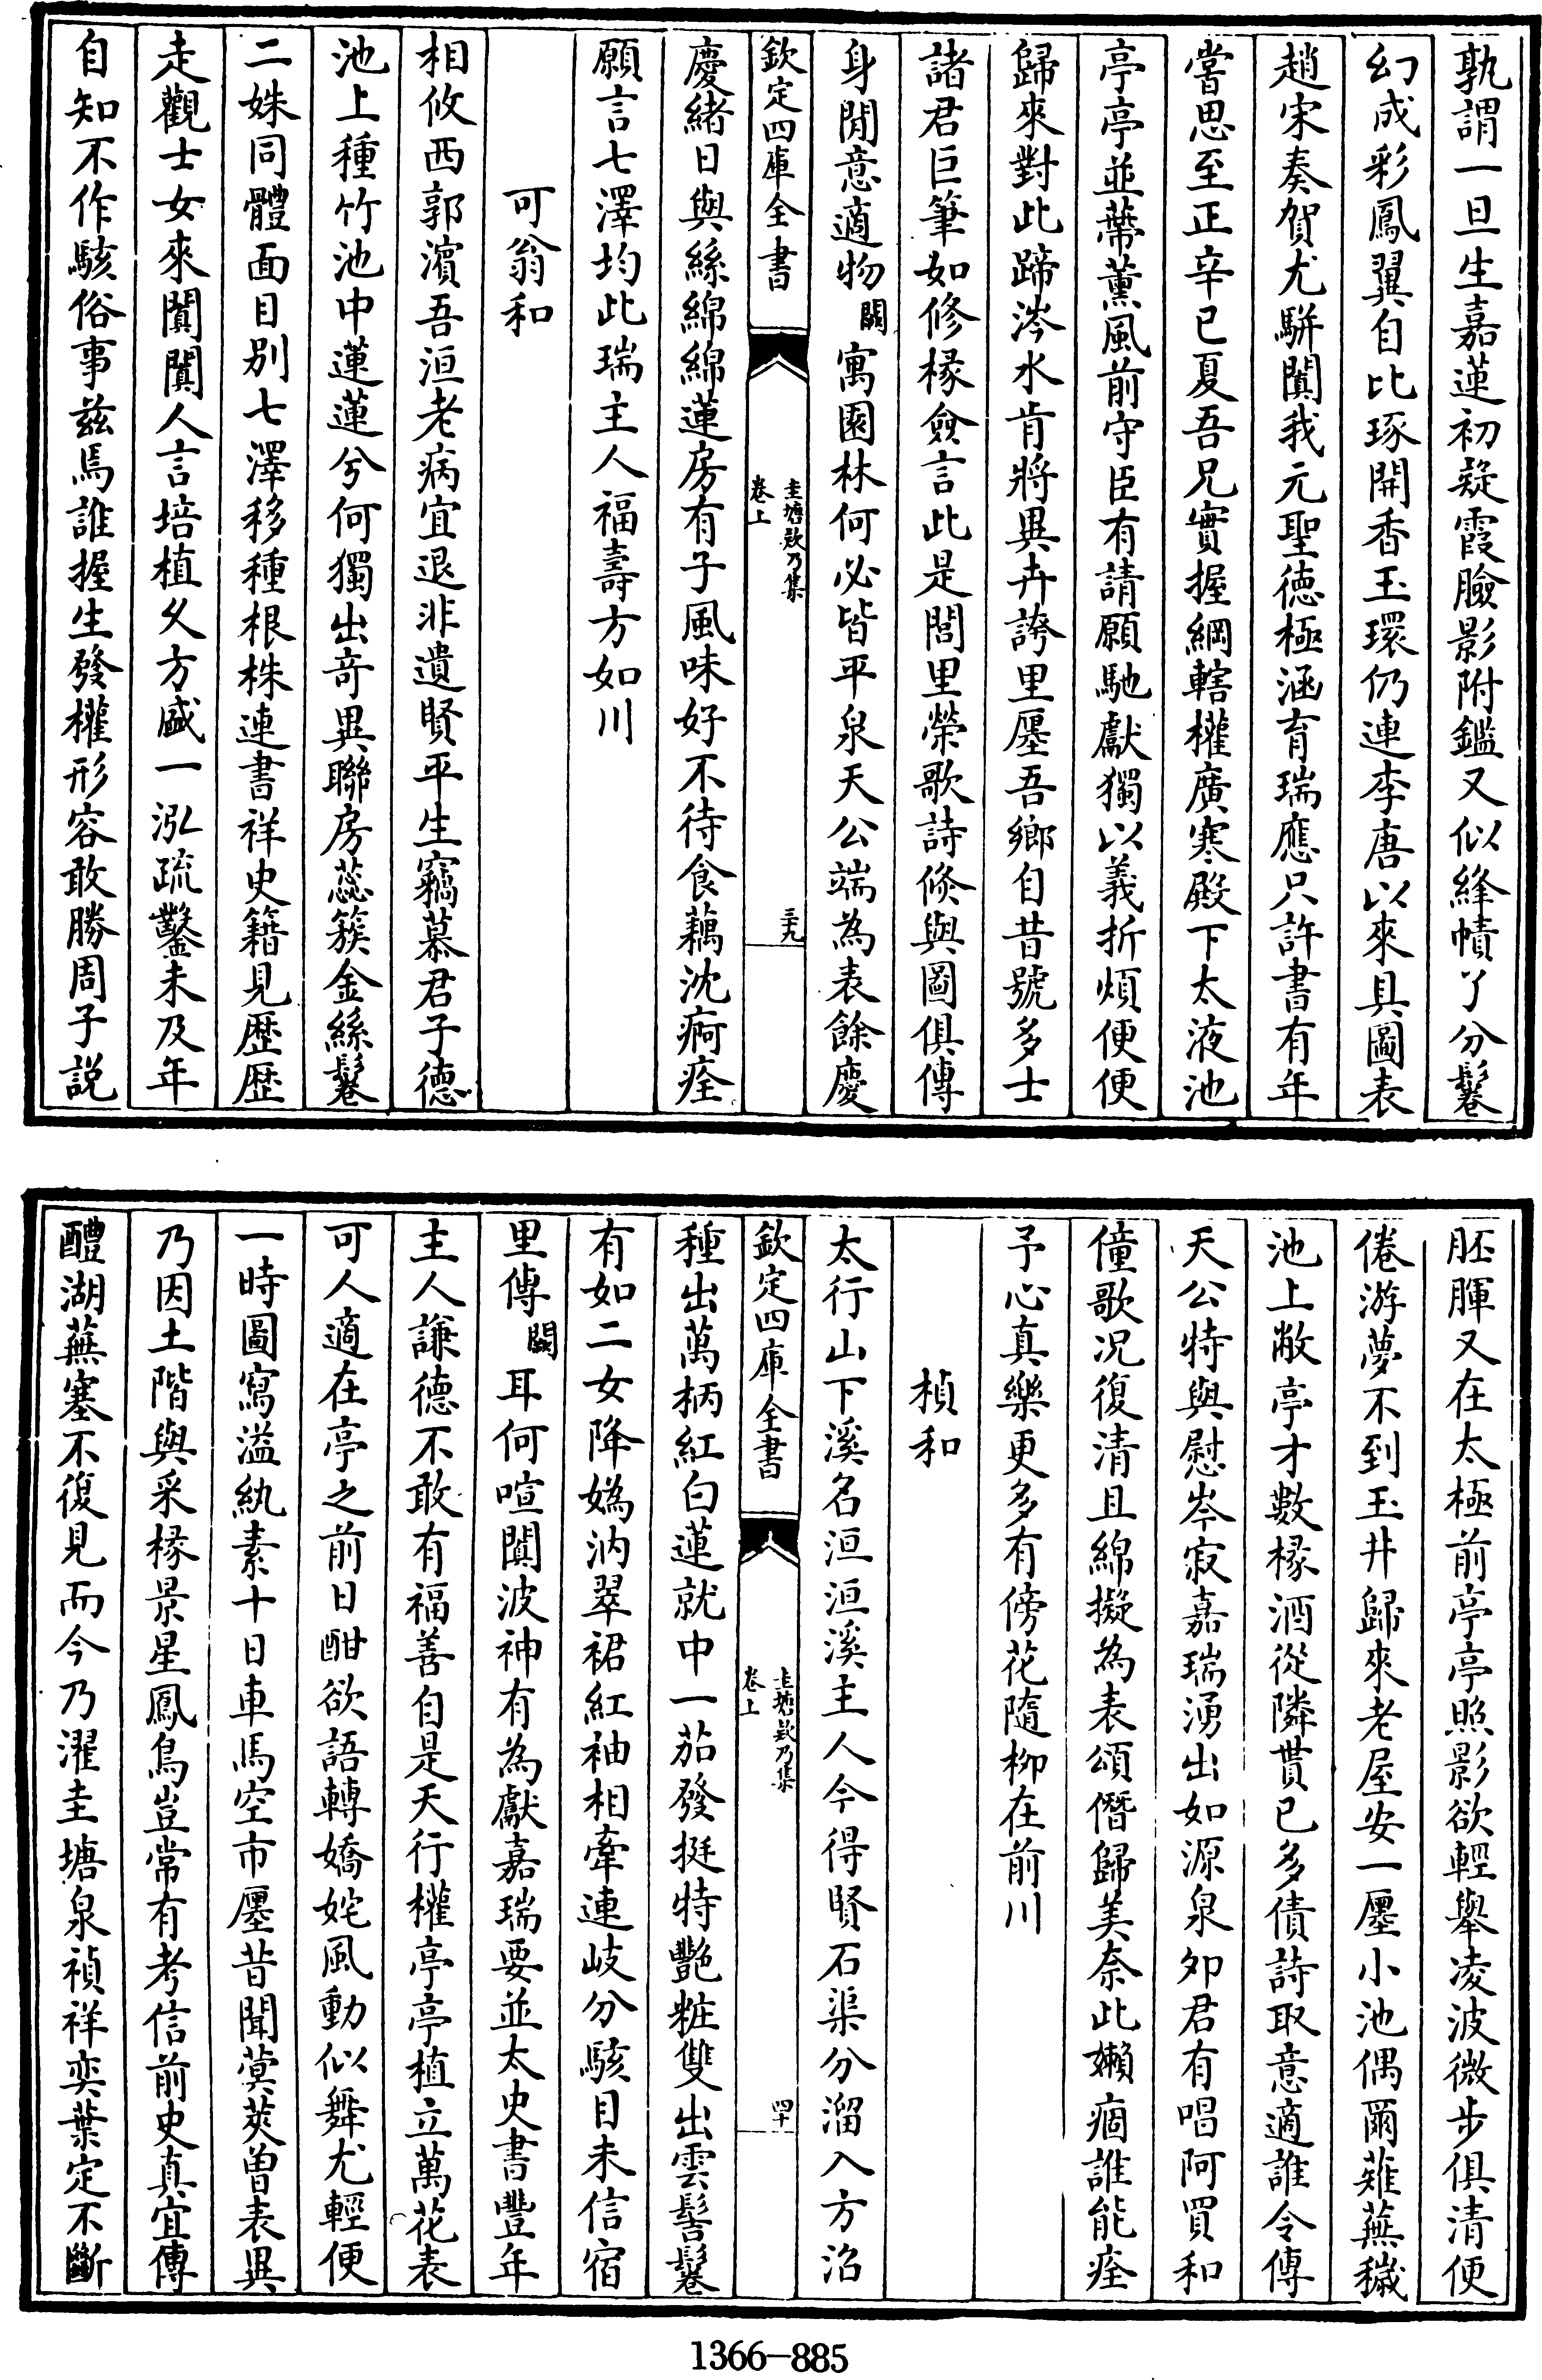 孰謂一旦生嘉蓮初疑霞臉影附鑑又似絳幘丫分鬈
幻成彩鳳翼自比琢開香玉環仍連李唐以來具圖表
趙宋奏賀尤駢闐我元聖徳極涵育瑞應只許書有年
嘗思至正辛巳夏吾兄實握綱轄權廣寒殿下太液池
亭亭並蔕薰風前守臣有請願馳獻獨以義折煩便便
歸來對此蹄涔水肯將異卉誇里㕓吾鄉自昔號多士
諸君巨筆如修椽僉言此是閭里榮歌詩倐與圖俱傳
身閒意適物闕寓園林何必皆平泉天公端為表餘慶
欽定四庫全書
圭塘欵乃集
卷上
三十九
慶緒日與絲綿綿蓮房有子風味好不待食藕沈痾痊
願言七澤均此瑞主人福壽方如川
可翁和
相攸西郭濱吾洹老病宜退非遺賢平生竊慕君子德
池上種竹池中蓮蓮兮何獨出竒異聯房蕊簇金絲鬈
二姝同體面目别七澤移種根株連書祥史籍見歴歴
走觀士女來闐闐人言培植乆方盛一泓疏鑿未及年
自知不作駭俗事兹焉誰握生發權形容敢勝周子説
胚暉又在太極前亭亭照影欲輕舉凌波微步俱清便
倦游夢不到玉井歸來老屋安一㕓小池偶爾薙蕪穢
池上敝亭才數椽酒從隣貰已多債詩取意適誰令傳
天公特與慰岑寂嘉瑞湧出如源泉夘君有唱阿買和
僮歌况復清且綿擬為表頌僭歸美奈此嬾痼誰能痊
予心真樂更多有傍花隨柳在前川
楨和
太行山下溪名洹洹溪主人今得賢石渠分溜入方沼
欽定四庫全書
圭塘欵乃集
卷上
四十
種出萬柄紅白蓮就中一茄發挺特艷粧雙出雲髻鬈
有如二女降媯汭翠裙紅袖相牽連岐分駭目未信宿
里傳闕耳何喧闐波神有為獻嘉瑞要並太史書豐年
主人謙德不敢有福善自是天行權亭亭植立萬花表
可人適在亭之前日酣欲語轉嬌姹風動似舞尤輕便
一時圖寫溢紈素十日車馬空市㕓昔聞蓂莢曽表異
乃因土階與采椽景星鳳鳥豈常有考信前史真宜傳
醴湖蕪塞不復見而今乃濯圭塘泉禎祥奕葉定不斷
1366-885